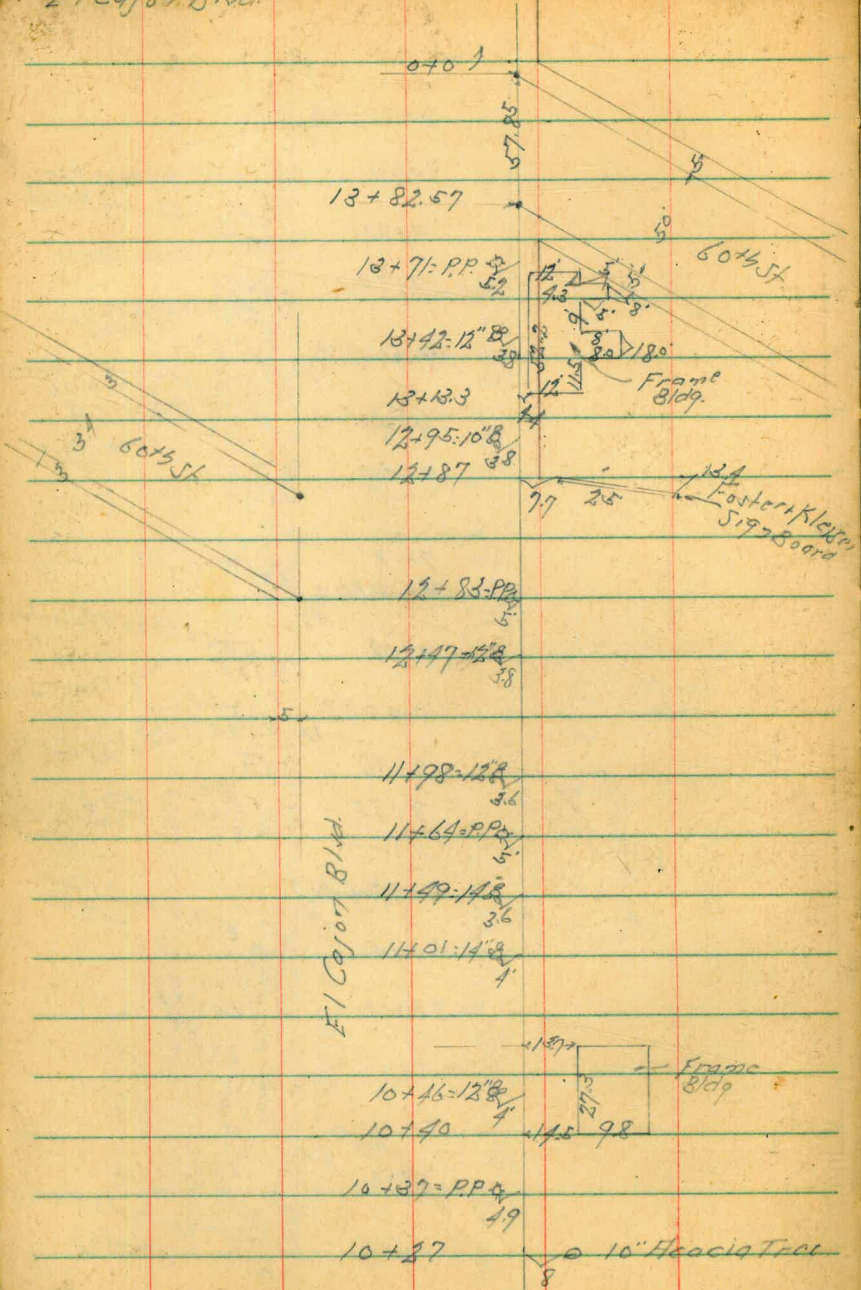 El Cajon Blvd.
0+0
57.85
5
13+82.57
50
60th St
13+71=P.P.
5.2
12'
4.3
5'
5'
5'
8'
9'
13+42=12"
3.8
8'
8.0
18.0
11.5
Frame
Bldg.
13+13.3
12'
4.4
12+95=10"
3.8
12+87
7.7
25
13.4
Foster & Kleiser
Sign Board
60th St
12+83=P.P.
12+47=12"
3.8
5
11+98=12"
3.6
11+64=P.P.
El Cajon Blvd.
11+49=14"
3.6
11+01=14"
4'
13.7
Frame
Bldg
27.3
10+46=12"
4'
10+40
14.5
9.8
10+37=P.P.
4.9
10+27
8
10" Acacia Tree